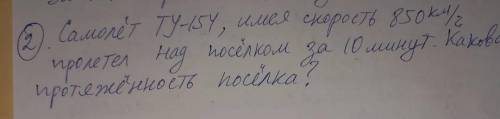 2. Самолёт ТУ-154, имея скорость 850 км/г
пролетел над посёлком за 10 минут. Какова
протяжённость посёлка?